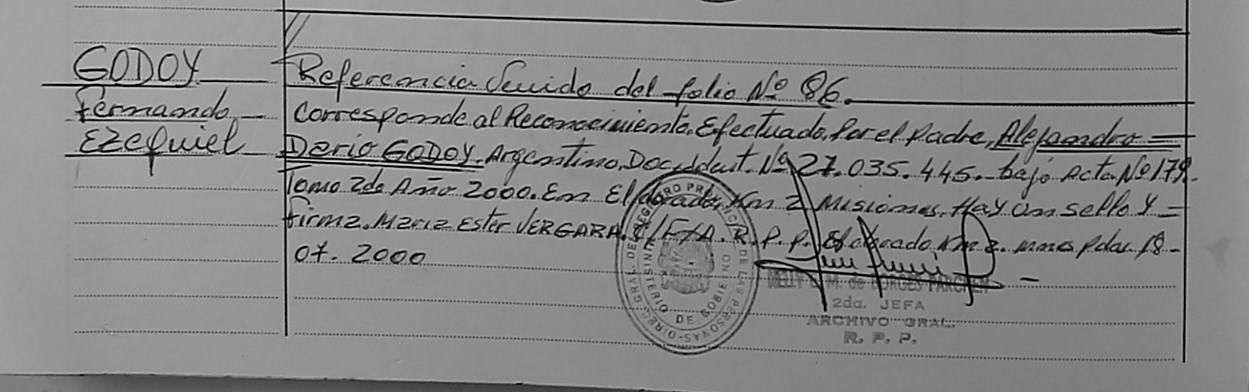 GODOY
Fernando
Ezequiel
Referencia Venida del folio Nº 86.
Corresponde al Reconocimiento, Efectuado, Por el Padre, Alejandro =
Dario GODOY. Argentino, Doc. Ident. Nº 27.035.445. bajo Acta Nº 179.
Tomo 2do Año 2000. En Eldorado, Km 2 Misiones, Hay un sello Y =
firma. Maria Ester VERGARA. R.P.P. Eldorado Km 2. Mnes 18-
07. 2000
DIREC. GRAL. DEL REGISTRO PROVINCIAL DE LAS PERSONAS
MINISTERIO DE GOBIERNO
NELLY M. de BORGES
2da. JEFA
ARCHIVO GRAL.
R. P. P.